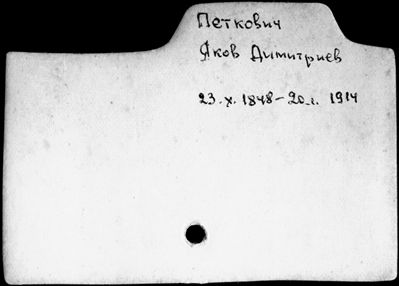 Петкович
Яков Димитриев
23.X.1848-20.I. 1914